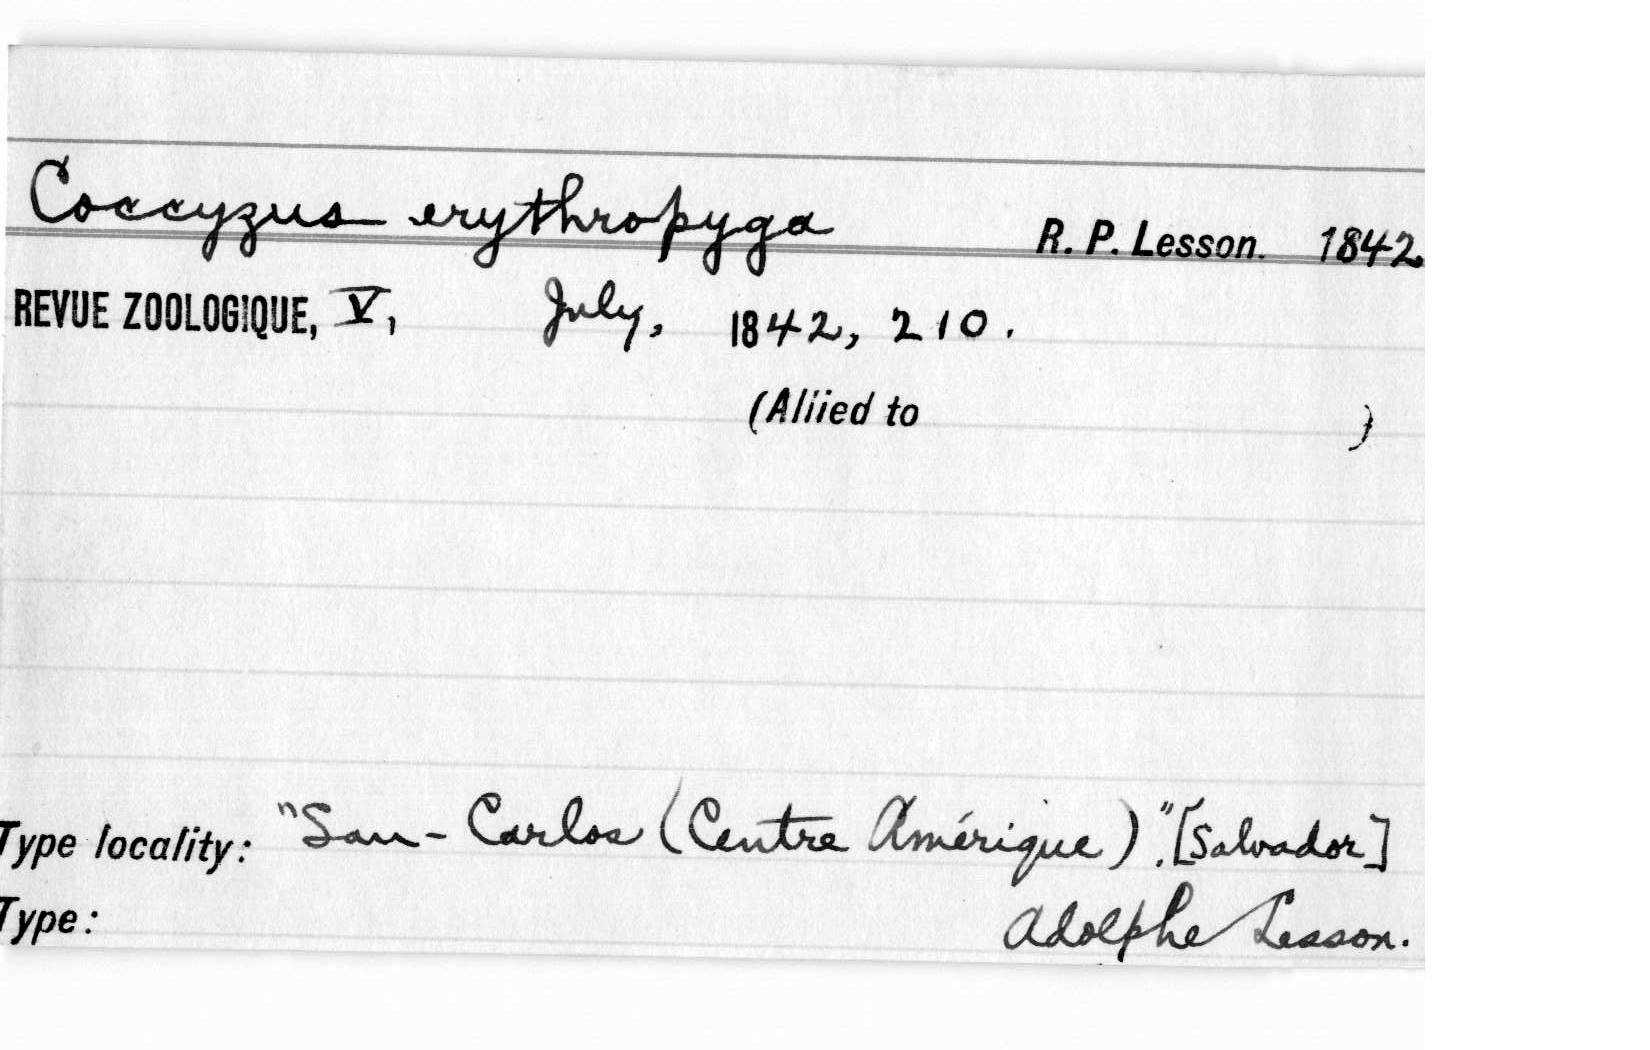 Coccyzus erythropyga R. P. Lesson. 1842
REVUE ZOOLOGIQUE, V, July, 1842, 210.
(Allied to )
Type locality: "San-Carlos (Centre Amérique)". [Salvador]
Type: Adolphe Lesson.